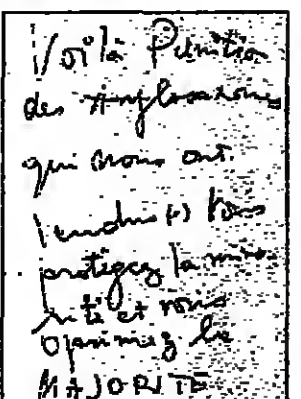 Voilà Punition
des Anglosaxons
qui nous ont
vendus (.) Vous
protégez la mino
rité et vous
oprimez la
MAJORITE